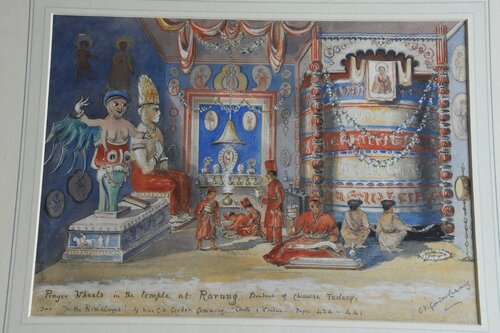 Prayer Wheels in the temple at Rarung. Borders of Chinese Tartary.
See "In the Himalayas" by Miss C. F. Gordon Cumming. Chatto & Windus. Page 424 - 441
C. F. Gordon Cumming